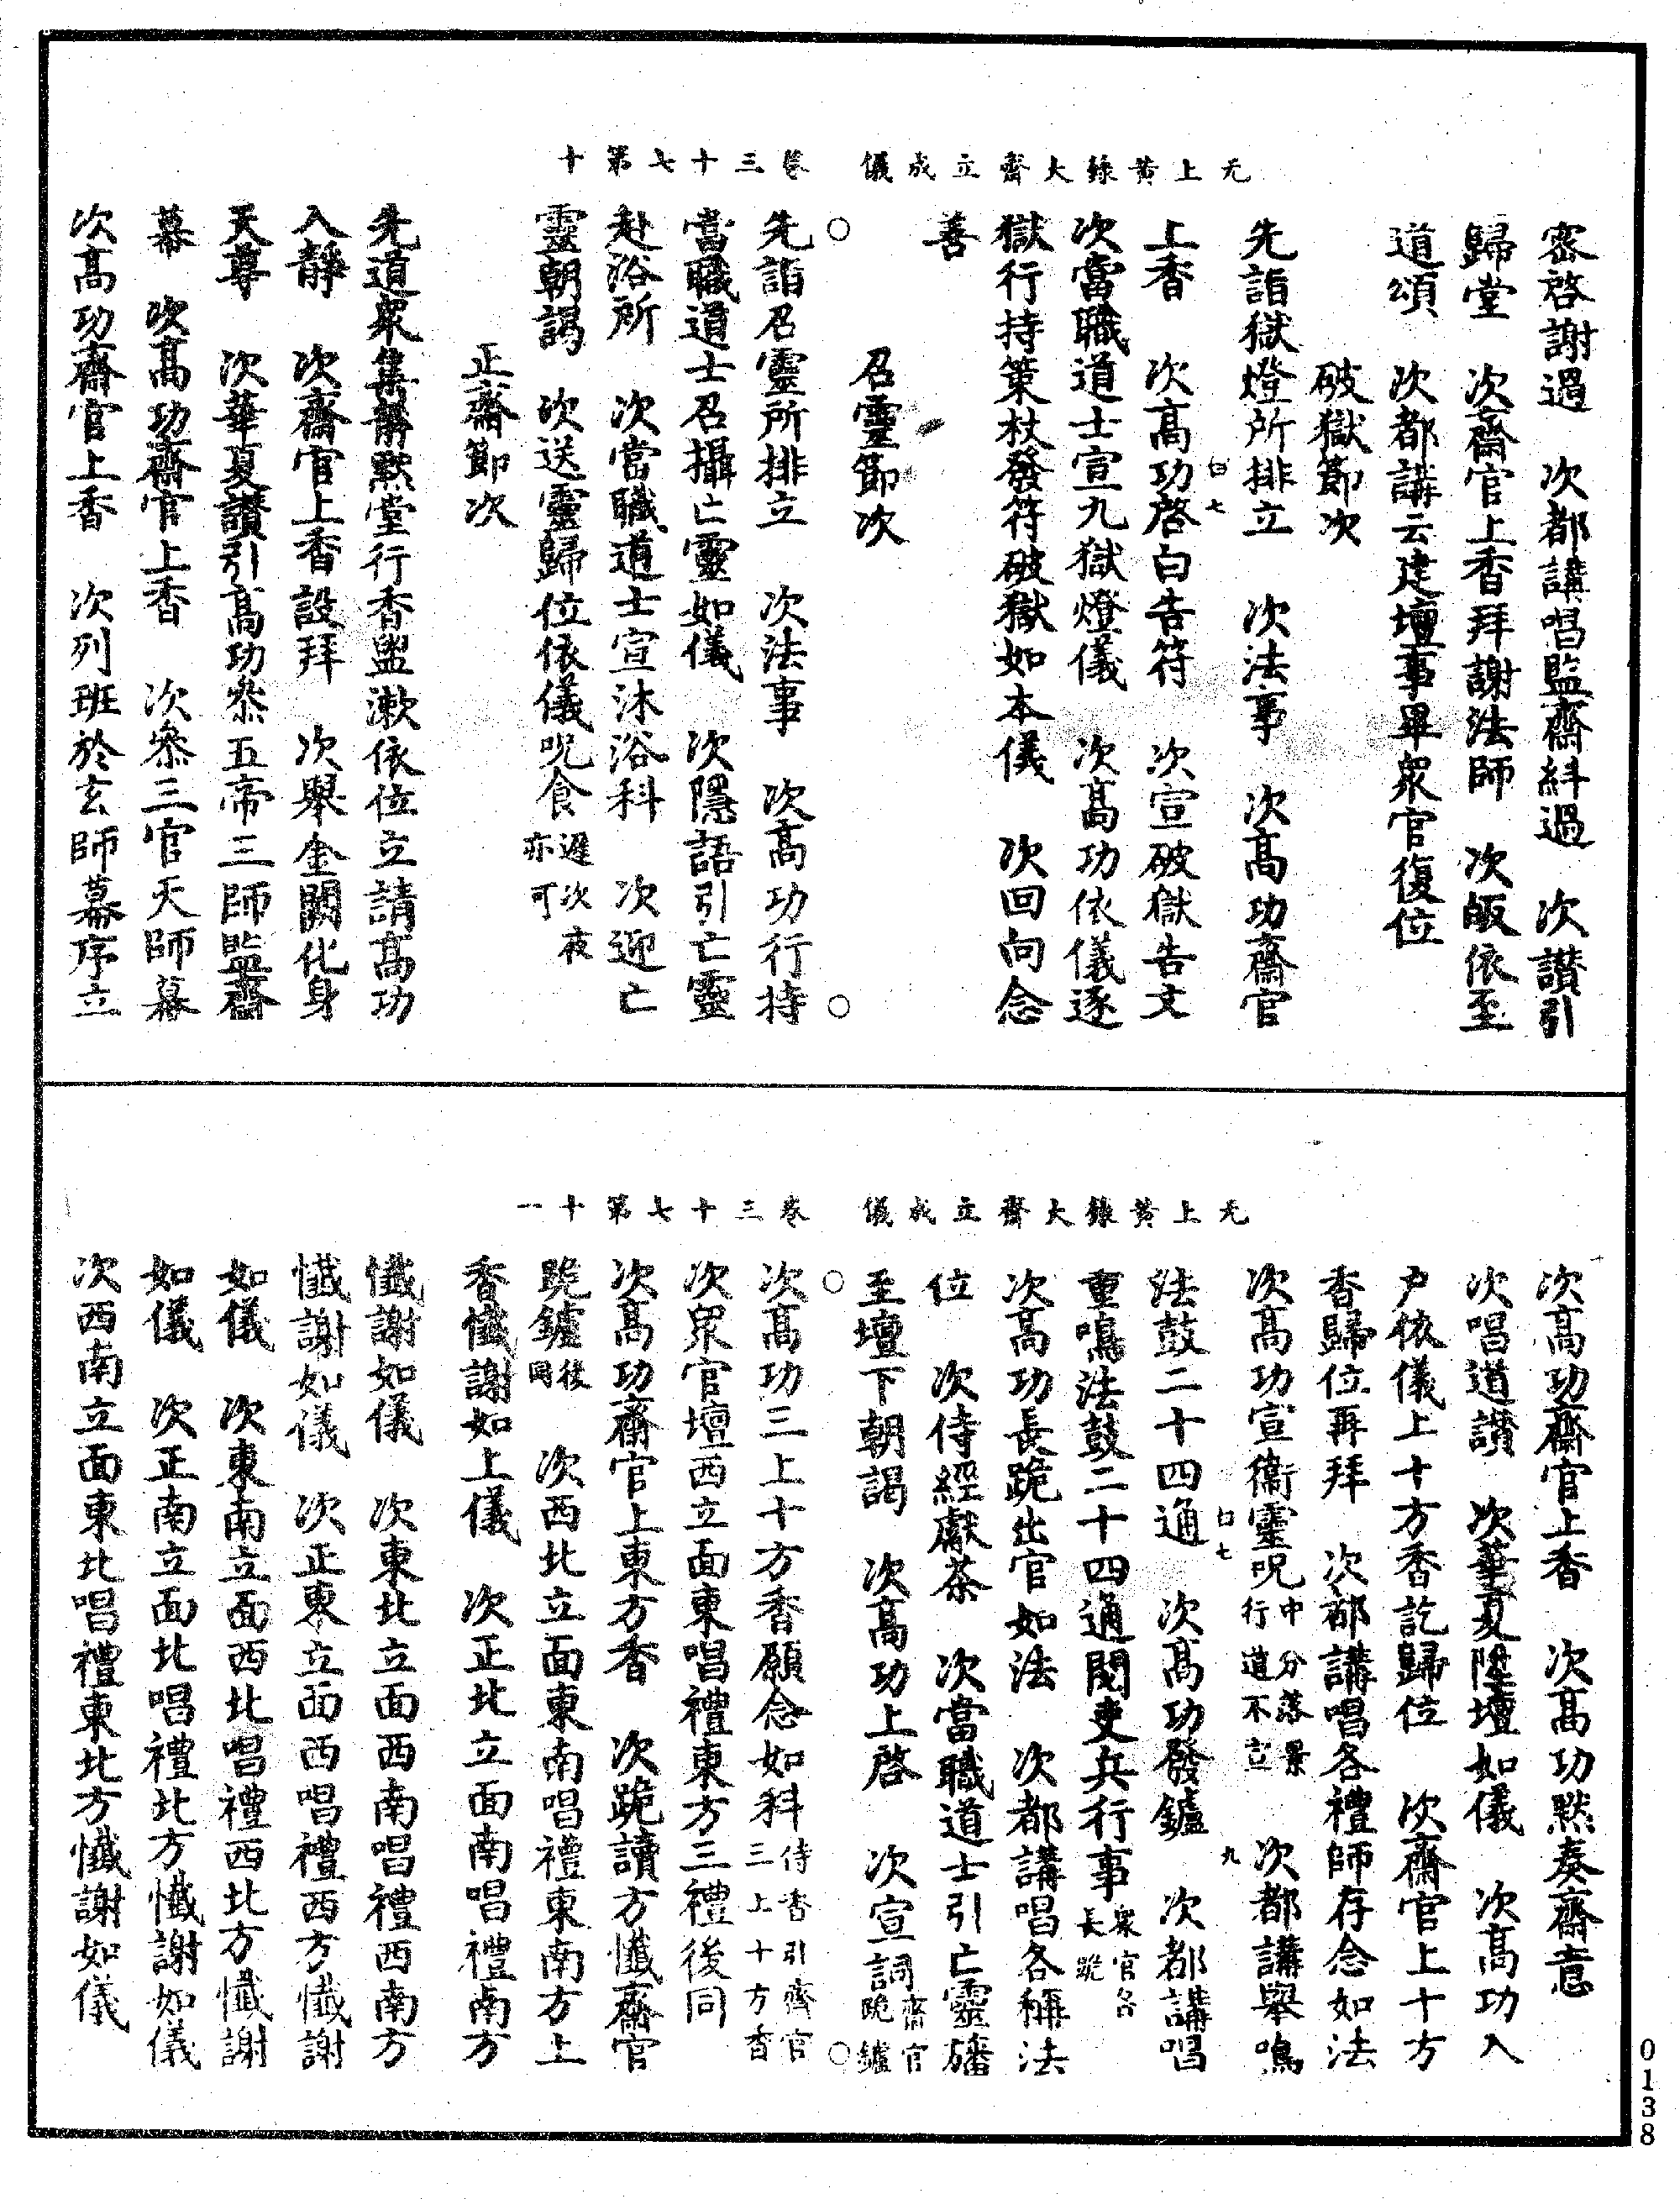 密啓謝過　次都講唱監齋糾過　次讃引
歸堂　次齋官上香拜謝法師　次皈依至
道頌　次都講云建壇事畢衆官復位
破獄節次
先詣獄燈所排立　次法事　次高功齋官
上香　次高功啓白告符　次宣破獄告文
次當職道士宣九獄燈儀　次高功依儀逐
獄行持策杖發符破獄如本儀　次回向念
善
无上黃籙大齋立成儀　卷三十七第十
召靈節次
先詣召靈所排立　次法事　次高功行持
當職道士召攝亡靈如儀　次隱語引亡靈
赴浴所　次當職道士宣沐浴科　次迎亡
靈朝謁　次送靈歸位依儀呪食遲次夜亦可
正齋節次
先道衆集靜默堂行香盥漱依位立請高功
入靜　次齋官上香設拜　次舉金闕化身
天尊　次華夏讃引高功叅五帝三師監齋
幕　次高功齋官上香　次叅三官天師幕
次高功齋官上香　次列班於玄師幕序立
次高功齋官上香　次高功默奏齋意
次唱道讃　次華夏陞壇如儀　次高功入
戶依儀上十方香訖歸位　次齋官上十方
香歸位再拜　次都講唱各禮師存念如法
次高功宣衛靈呪中分落景行道不立　次都講舉鳴
法鼓二十四通　次高功發鑪　次都講唱
重鳴法鼓二十四通閱吏兵行事衆官各長跪
次高功長跪出官如法　次都講唱各稱法
位　次侍經獻茶　次當職道士引亡靈旛
无上黃籙大齋立成儀　卷三十七第十一
至壇下朝謁　次高功上啓　次宣詞齋官跪鑪
次高功三上十方香願念如科侍香引齋官三上十方香
次衆官壇西立面東唱禮東方三禮後同
次高功齋官上東方香　次跪讀方懺齋官
跪鑪後同　次西北立面東南唱禮東南方上
香懺謝如上儀　次正北立面南唱禮南方
懺謝如儀　次東北立面西南唱禮西南方
懺謝如儀　次正東立面西唱禮西方懺謝
如儀　次東南立面西北唱禮西北方懺謝
如儀　次正南立面北唱禮北方懺謝如儀
次西南立面東北唱禮東北方懺謝如儀
0138